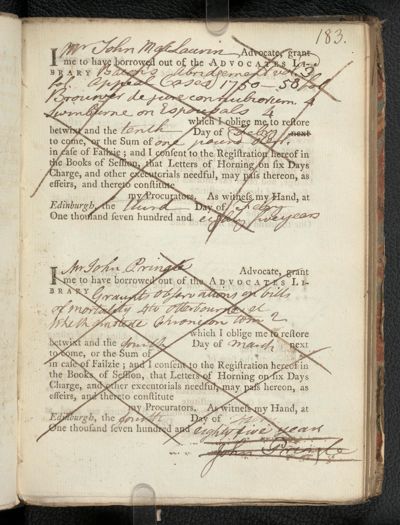 183.
I Mr John McLaurin Advocate, grant
me to have borrowed out of the ADVOCATES LI-
BRARY Bacon's Abridgement vol. 3
Appeal Cases 1750-58 fol
Brouwer de jure connubiorum 4
Swinburne on Espousals 4
which I oblige me to restore
betwixt and the tenth Day of next
to come, or the Sum of one pound Ster.
in case of Failzie; and I consent to the Registration hereof in
the Books of Session, that Letters of Horning on six Days
Charge, and other executorials needful, may pass hereon, as
effeirs, and thereto constitute
my Procurators. As witness my Hand, at
Edinburgh, the third Day of
One thousand seven hundred and eighty five years
I Mr John Pringle Advocate, grant
me to have borrowed out of the ADVOCATES LI-
BRARY Graunt's Observations on bills
of mortality 4to Otterbourne et
Whethamstede Chronicon tom 2
which I oblige me to restore
betwixt and the fourth Day of March next
to come, or the Sum of
in case of Failzie; and I consent to the Registration hereof in
the Books of Session, that Letters of Horning on six Days
Charge, and other executorials needful, may pass hereon, as
effeirs, and thereto constitute
my Procurators. As witness my Hand, at
Edinburgh, the fourth Day of
One thousand seven hundred and eighty five years
John Pringle